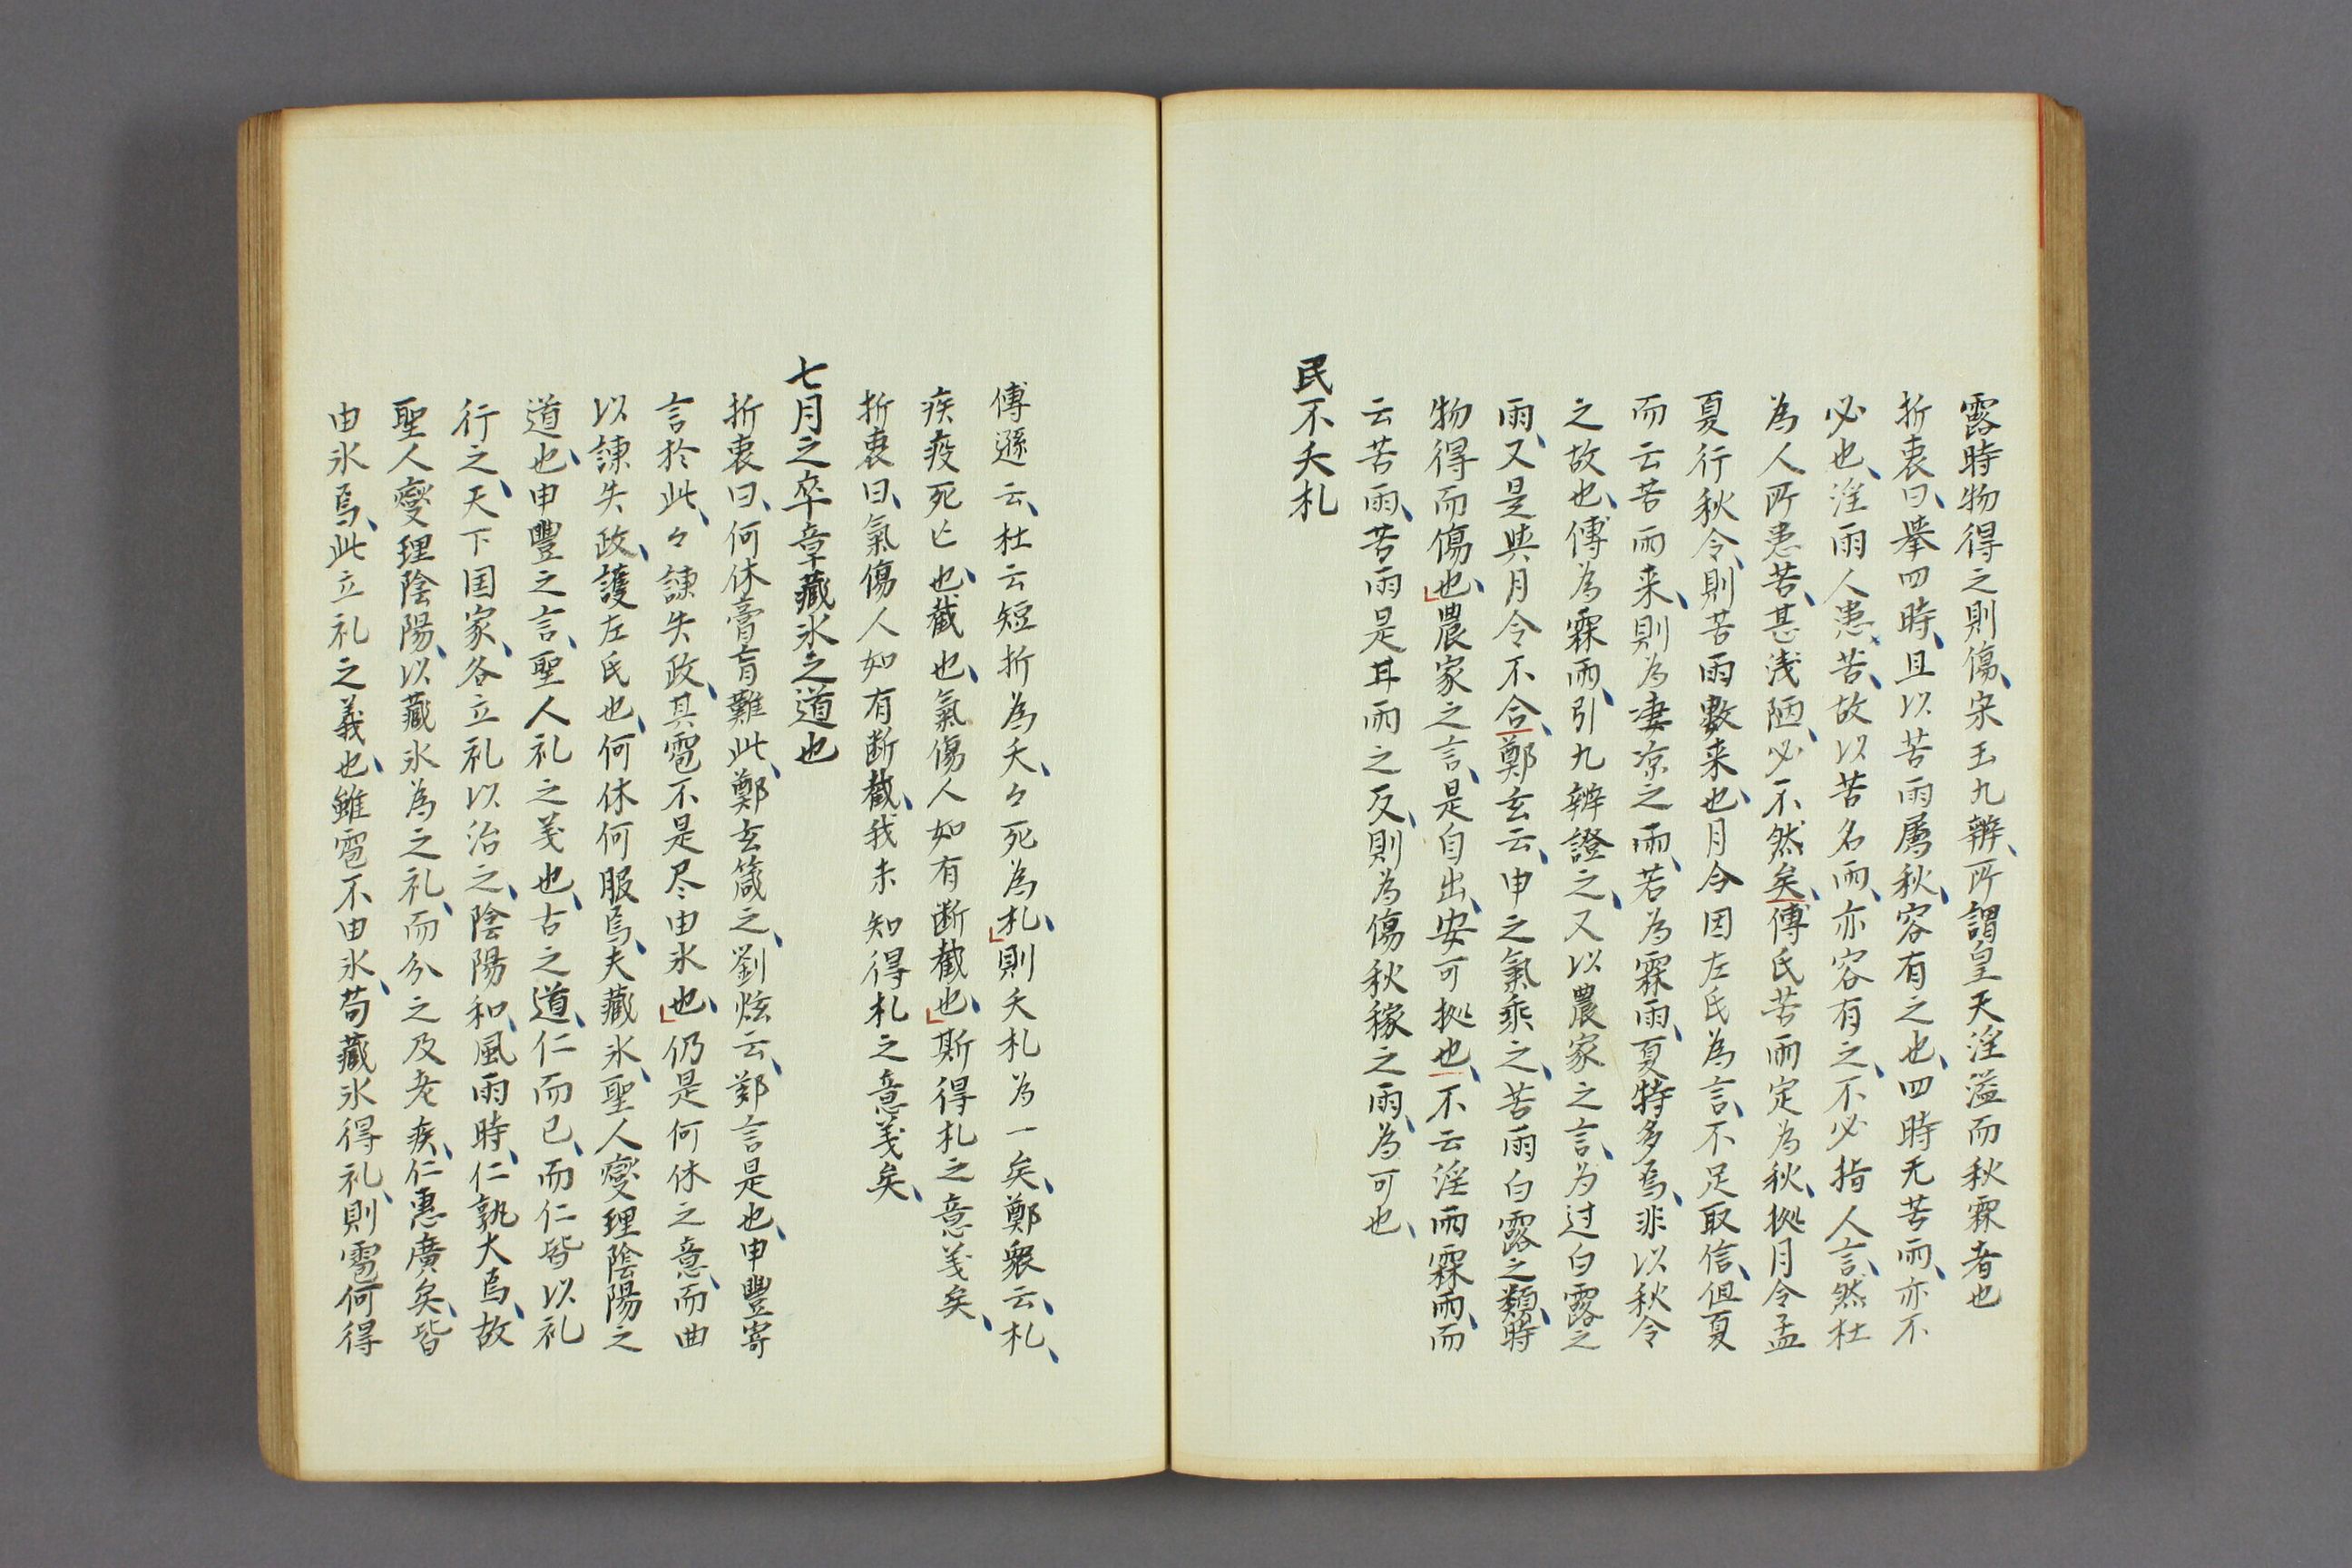 露時物得之則傷、宋玉九辨、所謂皇天淫溢而秋霖者也
折衷曰、挙四時、且以苦雨属秋、容有之也、四時无苦雨、亦不
必也、淫雨人患、苦、故以苦名雨、亦容有之、不必指人言、然杜
為人所患苦、甚浅陋、必不然矣、傅氏苦雨定為秋、拠月令孟
夏行秋令、則苦雨數来也、月令因左氏為言、不足取信、但夏
而云苦雨来、則為凄凉之雨、若為霖雨、夏特多焉、非以秋令
之故也、傅為霖雨、引九辨證之、又以農家之言、为过白露之
雨、又是與月令不合、鄭玄云、申之氣乘之、苦雨白露之類、時
物得而傷也、農家之言、是自出、安可拠也、不云淫雨霖雨、而
云苦雨、苦雨是甘雨之反、則為傷秋稼之雨、為可也、
民不夭札
傅遜云、杜云短折為夭、々死為札、則夭札為一矣、鄭衆云、札、
疾疫死亡也、截也、氣傷人如有断截也、斯得札之意義矣、
折衷曰、氣傷人如有断截、我未知得札之意義矣、
七月之卒章藏氷之道也
折衷曰、何休膏肓難此、鄭玄箴之、劉炫云、鄭言是也、申豐寄
言於此、々諌失政、其雹不是尽由氷也、仍是何休之意、而曲
以諌失政、護左氏也、何休何服焉、夫藏氷、聖人燮理陰陽之
道也、申豐之言、聖人礼之義也、古之道、仁而已、而仁皆以礼
行之、天下国家、各立礼以治之、陰陽和、風雨時、仁孰大焉、故
聖人燮理陰陽、以藏氷為之礼、而分之及老疾、仁惠廣矣、皆
由氷焉、此立礼之義也、雖雹不由氷、苟藏氷得礼、則雹何得